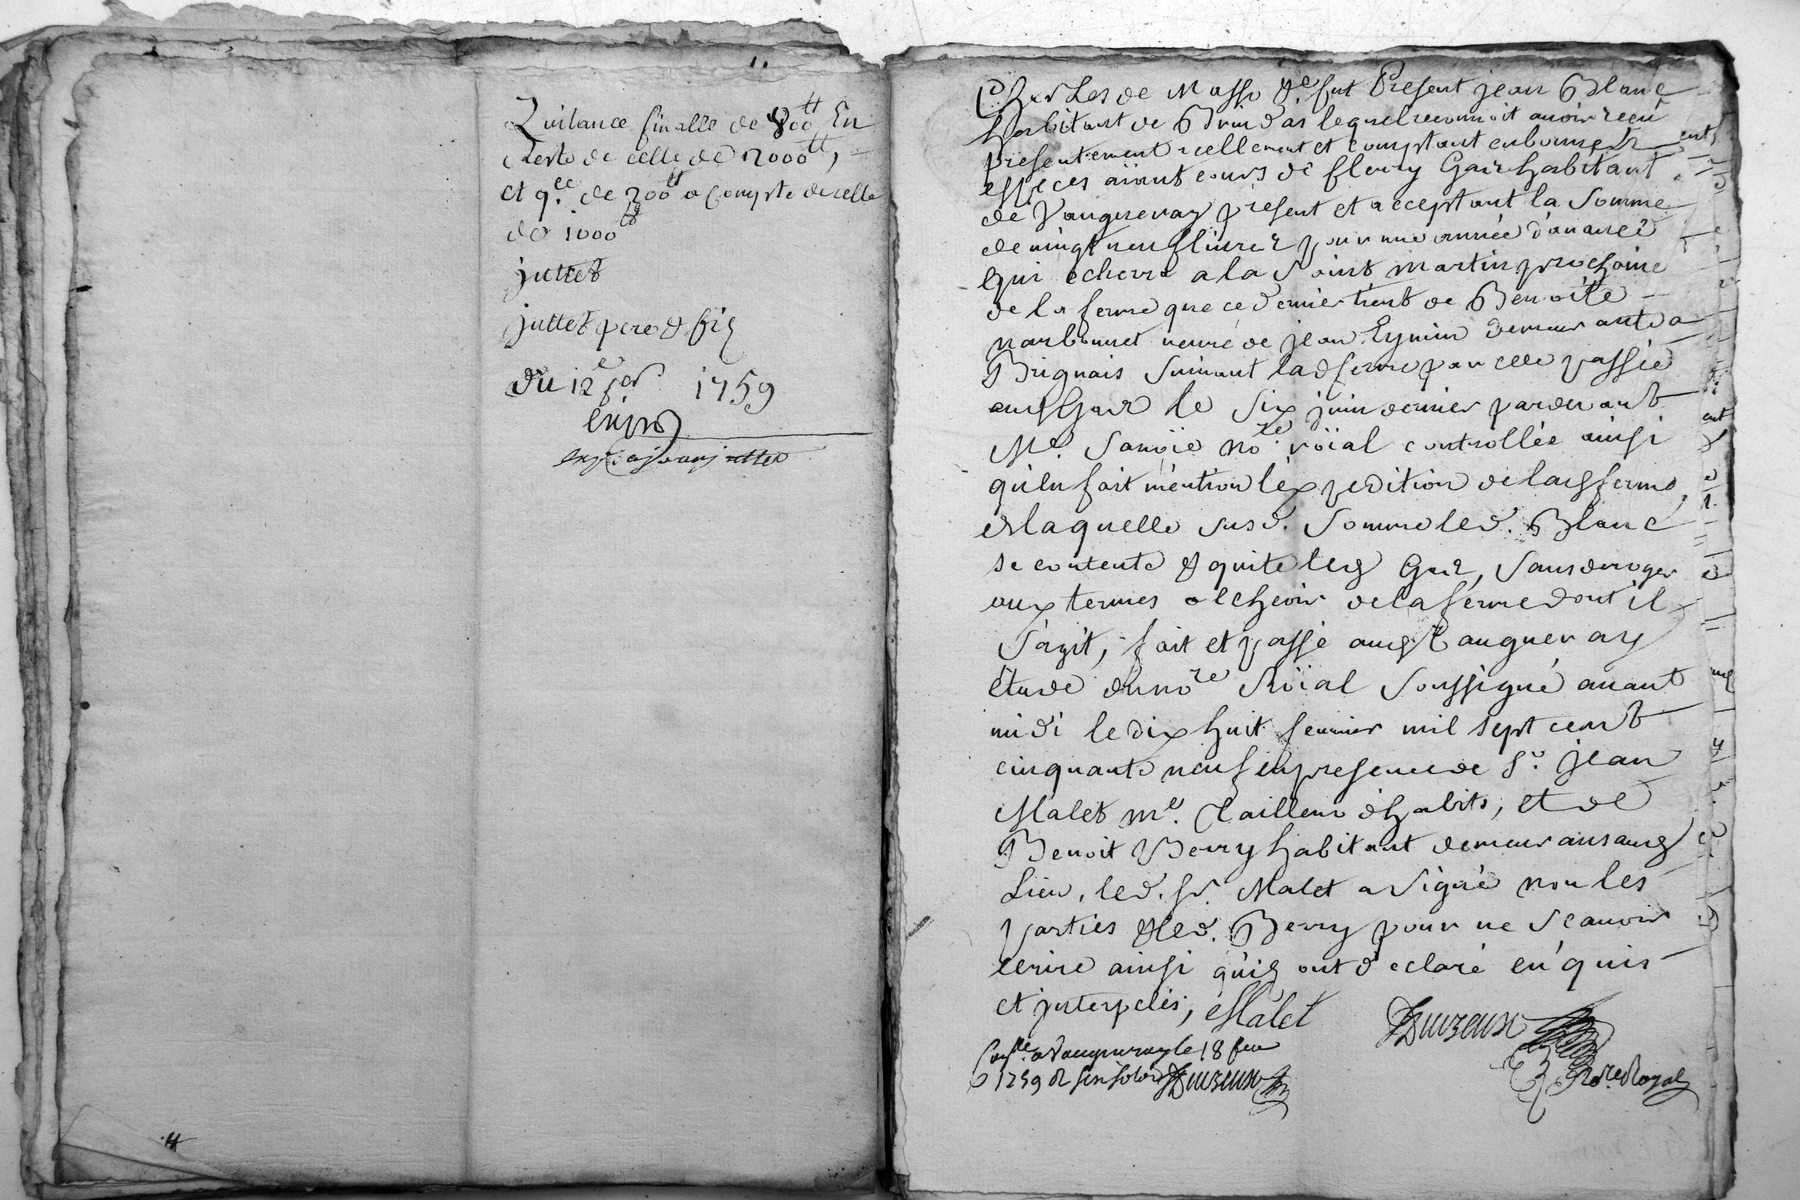 Quitance finalle de 800ᵗᵗ En
Reste de celle de 12000ᵗᵗ,
et q.ce de 200ᵗᵗ a Compte de celle
de 1000ᵗᵗ
juttet
juttet pere & fils
du 12e jer. 1759
Charles de Masso &c fut Present jean Blanc
habitant de Brindas lequel reconnoit auoir reçu
presentement reellement et comptant en bonnes
espéces aiant cours de fleury Gair habitant
de Vaugneray présent et acceptant la Somme
de uingt neuf liures pour une année d'auance
qui echerra a la Saint martin prochaine
de la ferme que ce dernier tient de Benoite
narbonnet veuve de jean Eymin demeurante a
Brignais Suiuant lad ferme par elle passée
aud Gair le six juin dernier pardeuant
Me. no.re roïal controllée ainsi
qu'en fait méntion léxpedition de lad ferme,
de laquelle susd. Somme led. Blanc
se contente & quite led Gair, Sans deroger
aux termes a echeoir de la ferme dont il
s'agit, fait et passé aud Vaugneray
étude du no.re Roïal Soussigné auant
midi le dix huit feurier mil sept cent
cinquante neuf en presence de Sr. jean
Malet me. Tailleur d'habits, et de
Benoit Berry habitant demeurans aud
Lieu, led. sr. Malet a Signé non les
parties & led. Berry pour ne Scauoir
ecrire ainsi qu'ils ont déclaré enquis
et interpelés, Malet
a Vaugneray le 18 feu
1759 R six sols
No.re Royal